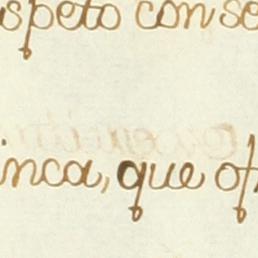 speto conse
inca, que of